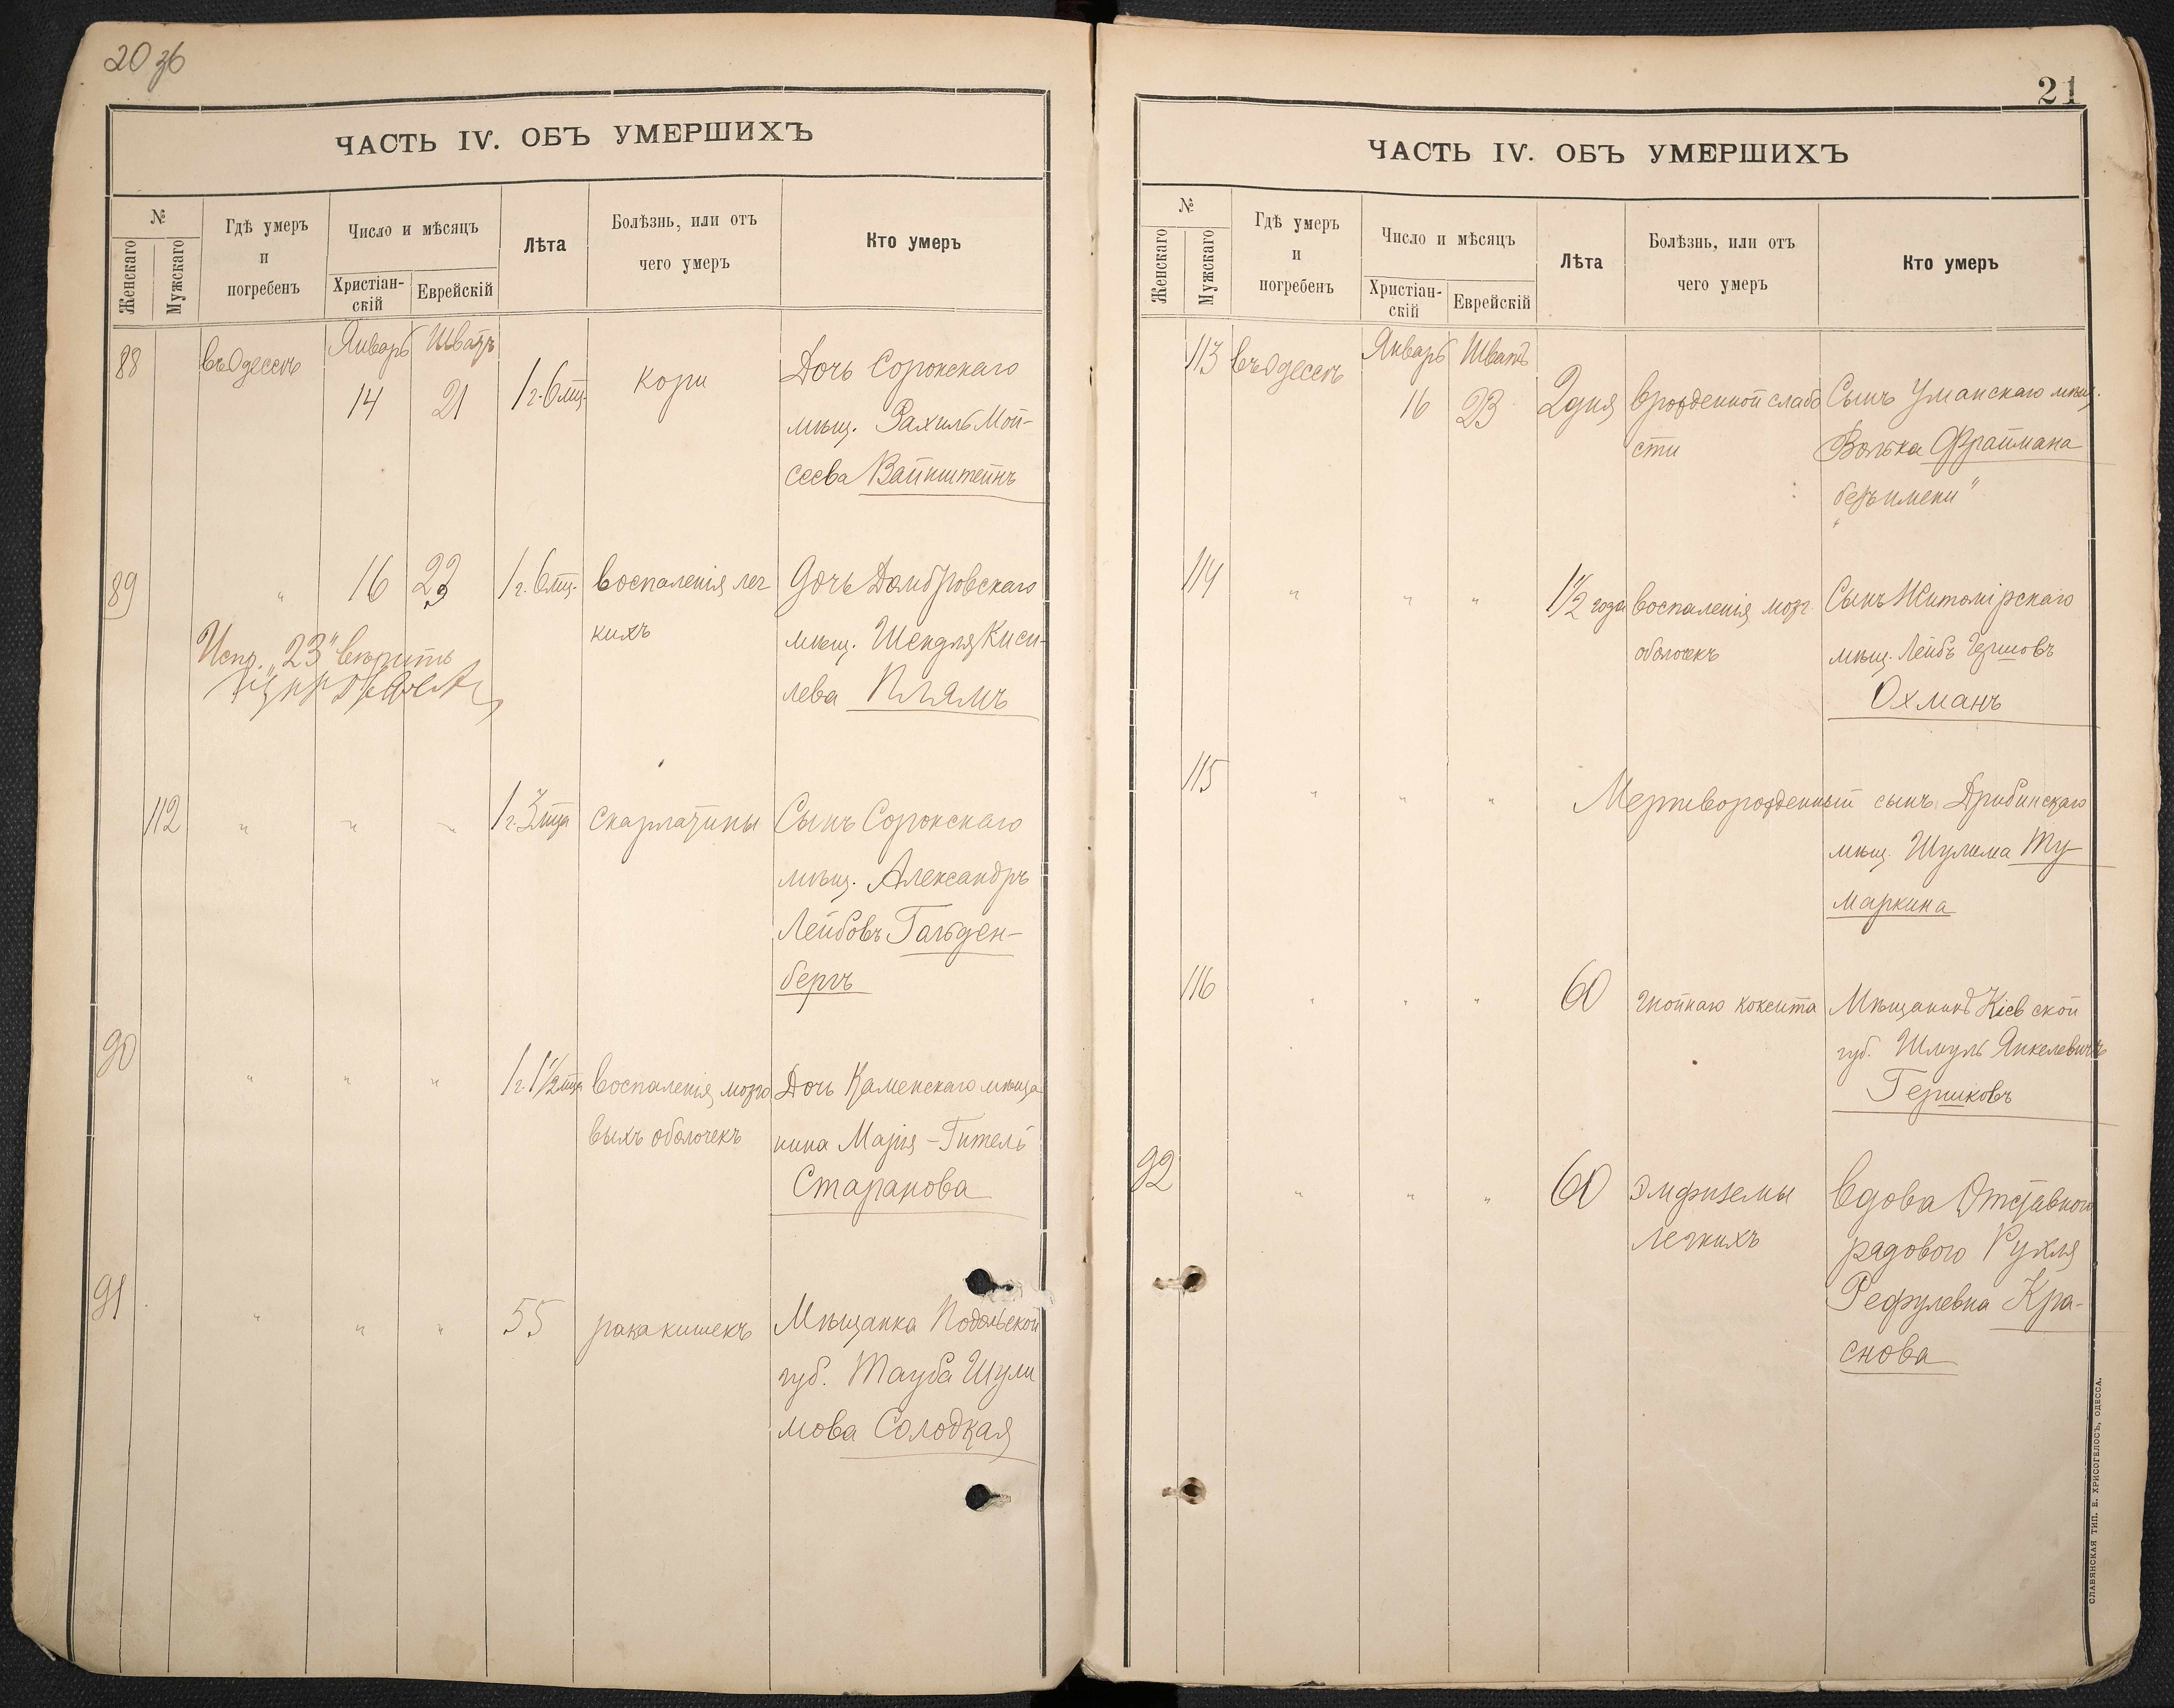 20 зб
ЧАСТЬ IV. ОБЪ УМЕРШИХЪ
№
Женскаго
Мужскаго
Гдѣ умеръ
и
погребенъ
Число и мѣсяцъ
Христіан-
скій
Еврейскій
Лѣта
Болѣзнь, или отъ
чего умеръ
Кто умеръ
88 въ Одессѣ Январь Шватъ
14 21 1 г. 6 мц. кори Дочь Сорокскаго
мѣщ. Рахиль Мой-
сеева Вайнштейнъ
89 " 16 23 1 г. 6 мц. воспаленія лег Дочь Домбровскаго
кихъ мѣщ. Шендля Киси-
лева Плямъ
Испр. „23" вѣрить
112 " " " 1 г. 3 мца скарлатины Сынъ Сорокскаго
мѣщ. Александръ
Лейбовъ Гальден-
бергъ
90 " " " 1 г. 1½ мца воспаленія мозго Дочь Каменскаго мѣща
выхъ оболочекъ нина Марія-Гитель
Старанова
91 " " " 55 рака кишекъ Мѣщанка Подольской
губ. Тауба Шули
мова Солодкая
21
ЧАСТЬ IV. ОБЪ УМЕРШИХЪ
№
Женскаго
Мужскаго
Гдѣ умеръ
и
погребенъ
Число и мѣсяцъ
Христіан-
скій
Еврейскій
Лѣта
Болѣзнь, или отъ
чего умеръ
Кто умеръ
113 въ Одессѣ Январь Шватъ
16 23 2 дня врожденной слабо Сынъ Уманскаго мѣщ.
сти Волька Фраймана
„безъ имени"
114 " " " 1½ года воспаленія мозг. Сынъ Житомірскаго
оболочекъ мѣщ. Лейбъ Гершовъ
Охманъ
115 " " " Мертворожденный сынъ Дрибинскаго
мѣщ. Шулима Ту-
маркина
116 " " " 60 гнойнаго коксита Мѣщанинъ Кіевской
губ. Шмуль Янкелевичъ
Гершковъ
92 " " " 60 Эмфиземы Вдова Отставного
легкихъ рядового Рухля
Рефулевна Кра-
снова
СЛАВЯНСКАЯ ТИП. Е. ХРИСОГЕЛОСЪ, ОДЕССА.